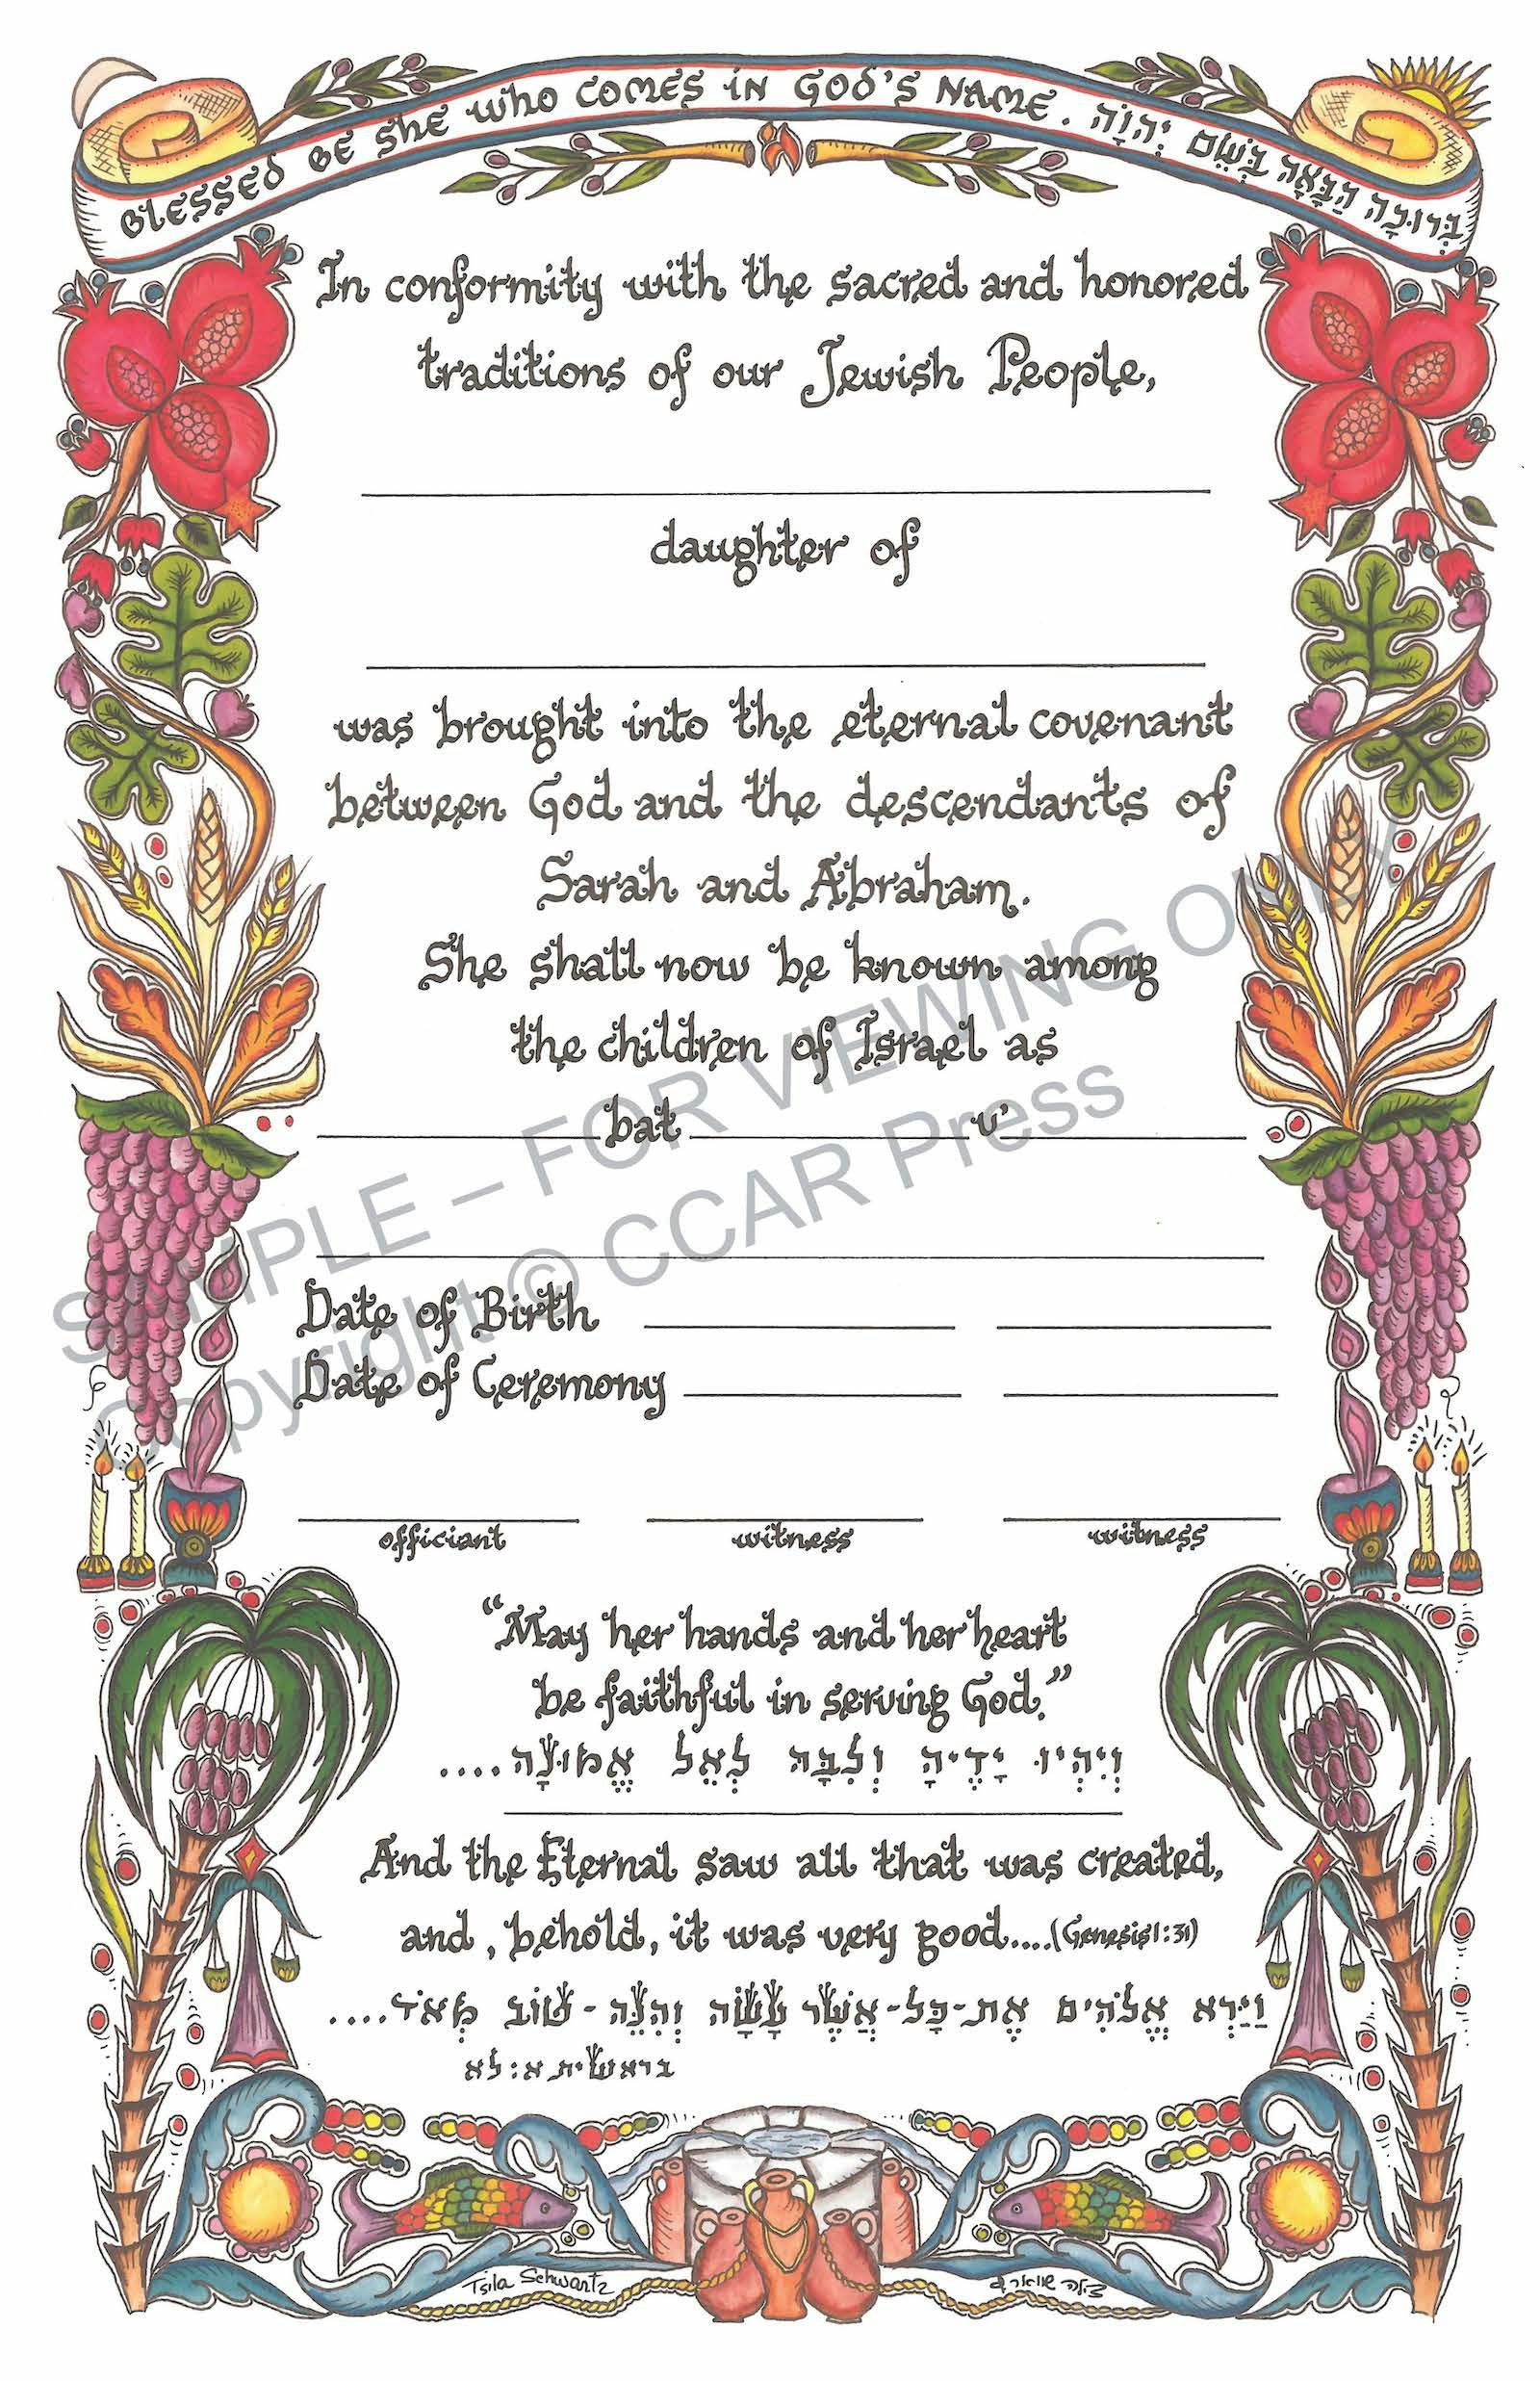 BLESSED BE SHE WHO COMES IN GOD'S NAME. בְּרוּכָה הַבָּאָה בְּשֵׁם יְהוָֹה
In conformity with the sacred and honored
traditions of our Jewish People,
daughter of
was brought into the eternal covenant
between God and the descendants of
Sarah and Abraham.
She shall now be known among
the children of Israel as
bat v'
Date of Birth
Date of Ceremony
officiant witness witness
"May her hands and her heart
be faithful in serving God."
וְיִהְיוּ יָדֶיהָ וְלִבָּהּ לְאֵל אֱמוּנָה....
And the Eternal saw all that was created,
and, behold, it was very good....(Genesis 1:31)
וַיַּרְא אֱלֹהִים אֶת-כָּל-אֲשֶׁר עָשָׂה וְהִנֵּה-טוֹב מְאֹד....
בראשית א:לא
Tsila Schwartz צילה שווארץ
SAMPLE – FOR VIEWING ONLY
Copyright © CCAR Press